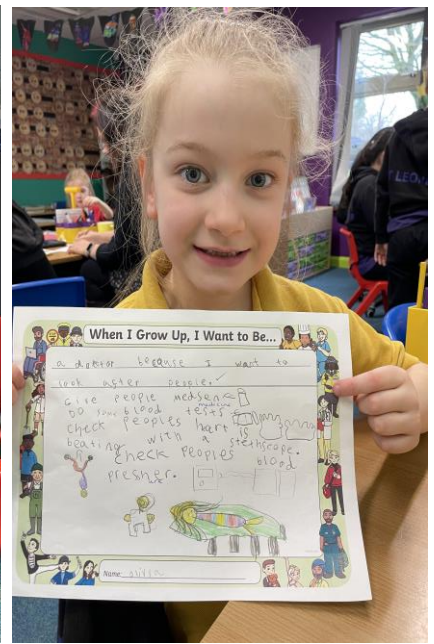 When I Grow Up, I Want to Be...
a doctor because I want to
look after people.
Give people medsen
medicine
Do some blood tests
check peoples hart is
beating with a stethscope.
check peoples blood
presher.
Name olivia
LEOPA